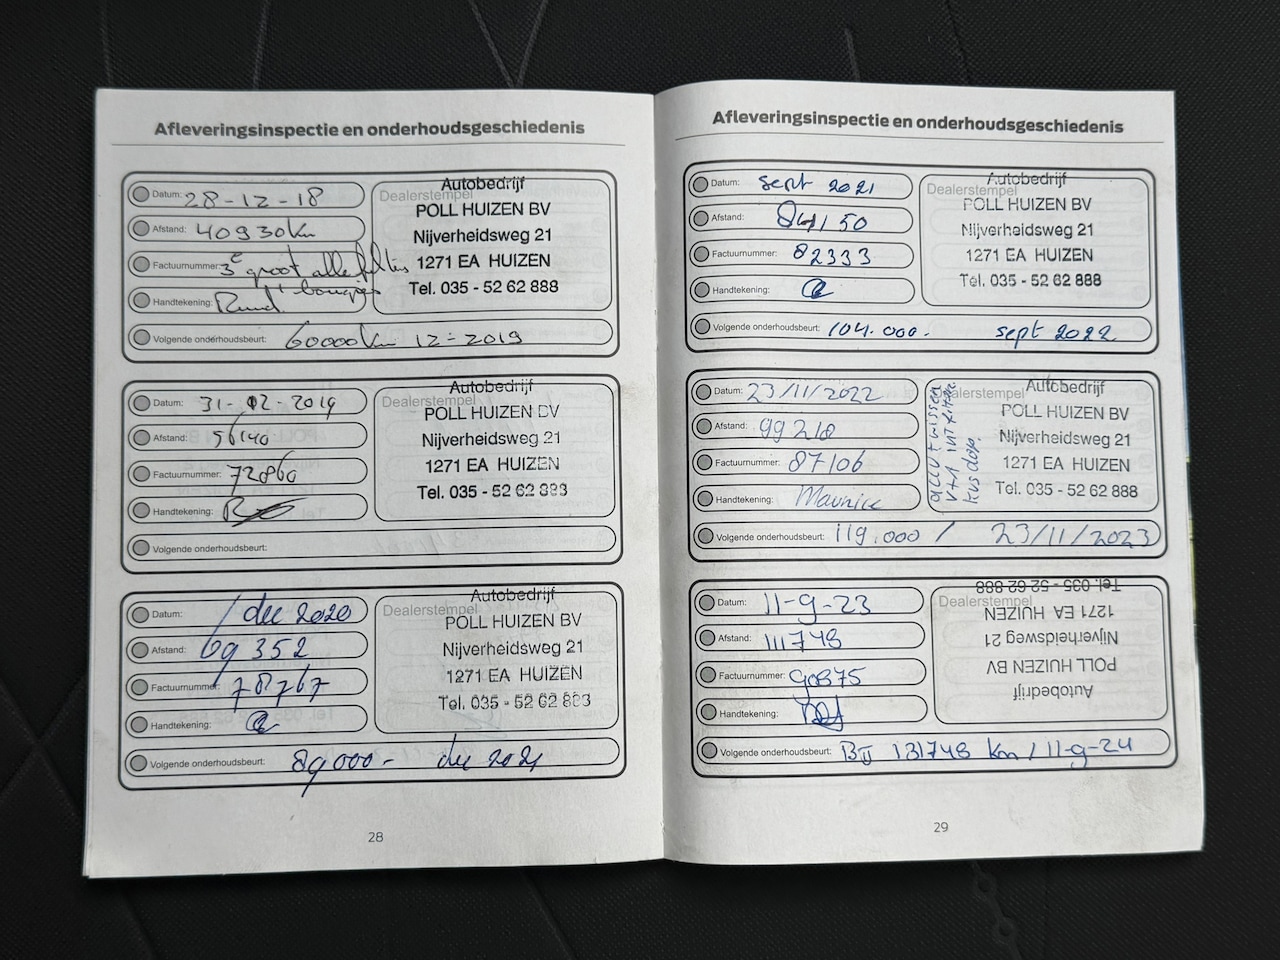 Afleveringsinspectie en onderhoudsgeschiedenis
Datum: 28-12-18
Afstand: 40930km
Factuurnummer: 3e groot alle filters
+ bougies
Handtekening: Ruud
Dealerstempel
Autobedrijf
POLL HUIZEN BV
Nijverheidsweg 21
1271 EA HUIZEN
Tel. 035 - 52 62 888
Volgende onderhoudsbeurt: 60000km 12-2019
Datum: 31-12-2019
Afstand: 56140
Factuurnummer: 72860
Handtekening:
Dealerstempel
Autobedrijf
POLL HUIZEN BV
Nijverheidsweg 21
1271 EA HUIZEN
Tel. 035 - 52 62 888
Volgende onderhoudsbeurt:
Datum: dec 2020
Afstand: 69352
Factuurnummer: 78767
Handtekening:
Dealerstempel
Autobedrijf
POLL HUIZEN BV
Nijverheidsweg 21
1271 EA HUIZEN
Tel. 035 - 52 62 888
Volgende onderhoudsbeurt: 89000- dec 2021
28
Afleveringsinspectie en onderhoudsgeschiedenis
Datum: sept 2021
Afstand: 84150
Factuurnummer: 82333
Handtekening:
Dealerstempel
Autobedrijf
POLL HUIZEN BV
Nijverheidsweg 21
1271 EA HUIZEN
Tel. 035 - 52 62 888
Volgende onderhoudsbeurt: 104.000- sept 2022
Datum: 23/11/2022
Afstand: 99218
Factuurnummer: 87106
Handtekening: Maurice
Dealerstempel
Autobedrijf
POLL HUIZEN BV
Nijverheidsweg 21
1271 EA HUIZEN
Tel. 035 - 52 62 888
Volgende onderhoudsbeurt: 119.000 / 23/11/2023
Datum: 11-9-23
Afstand: 111748
Factuurnummer: 90875
Handtekening:
Dealerstempel
Autobedrijf
POLL HUIZEN BV
Nijverheidsweg 21
1271 EA HUIZEN
Tel. 035 - 52 62 888
Volgende onderhoudsbeurt: 131748 km / 11-9-24
29